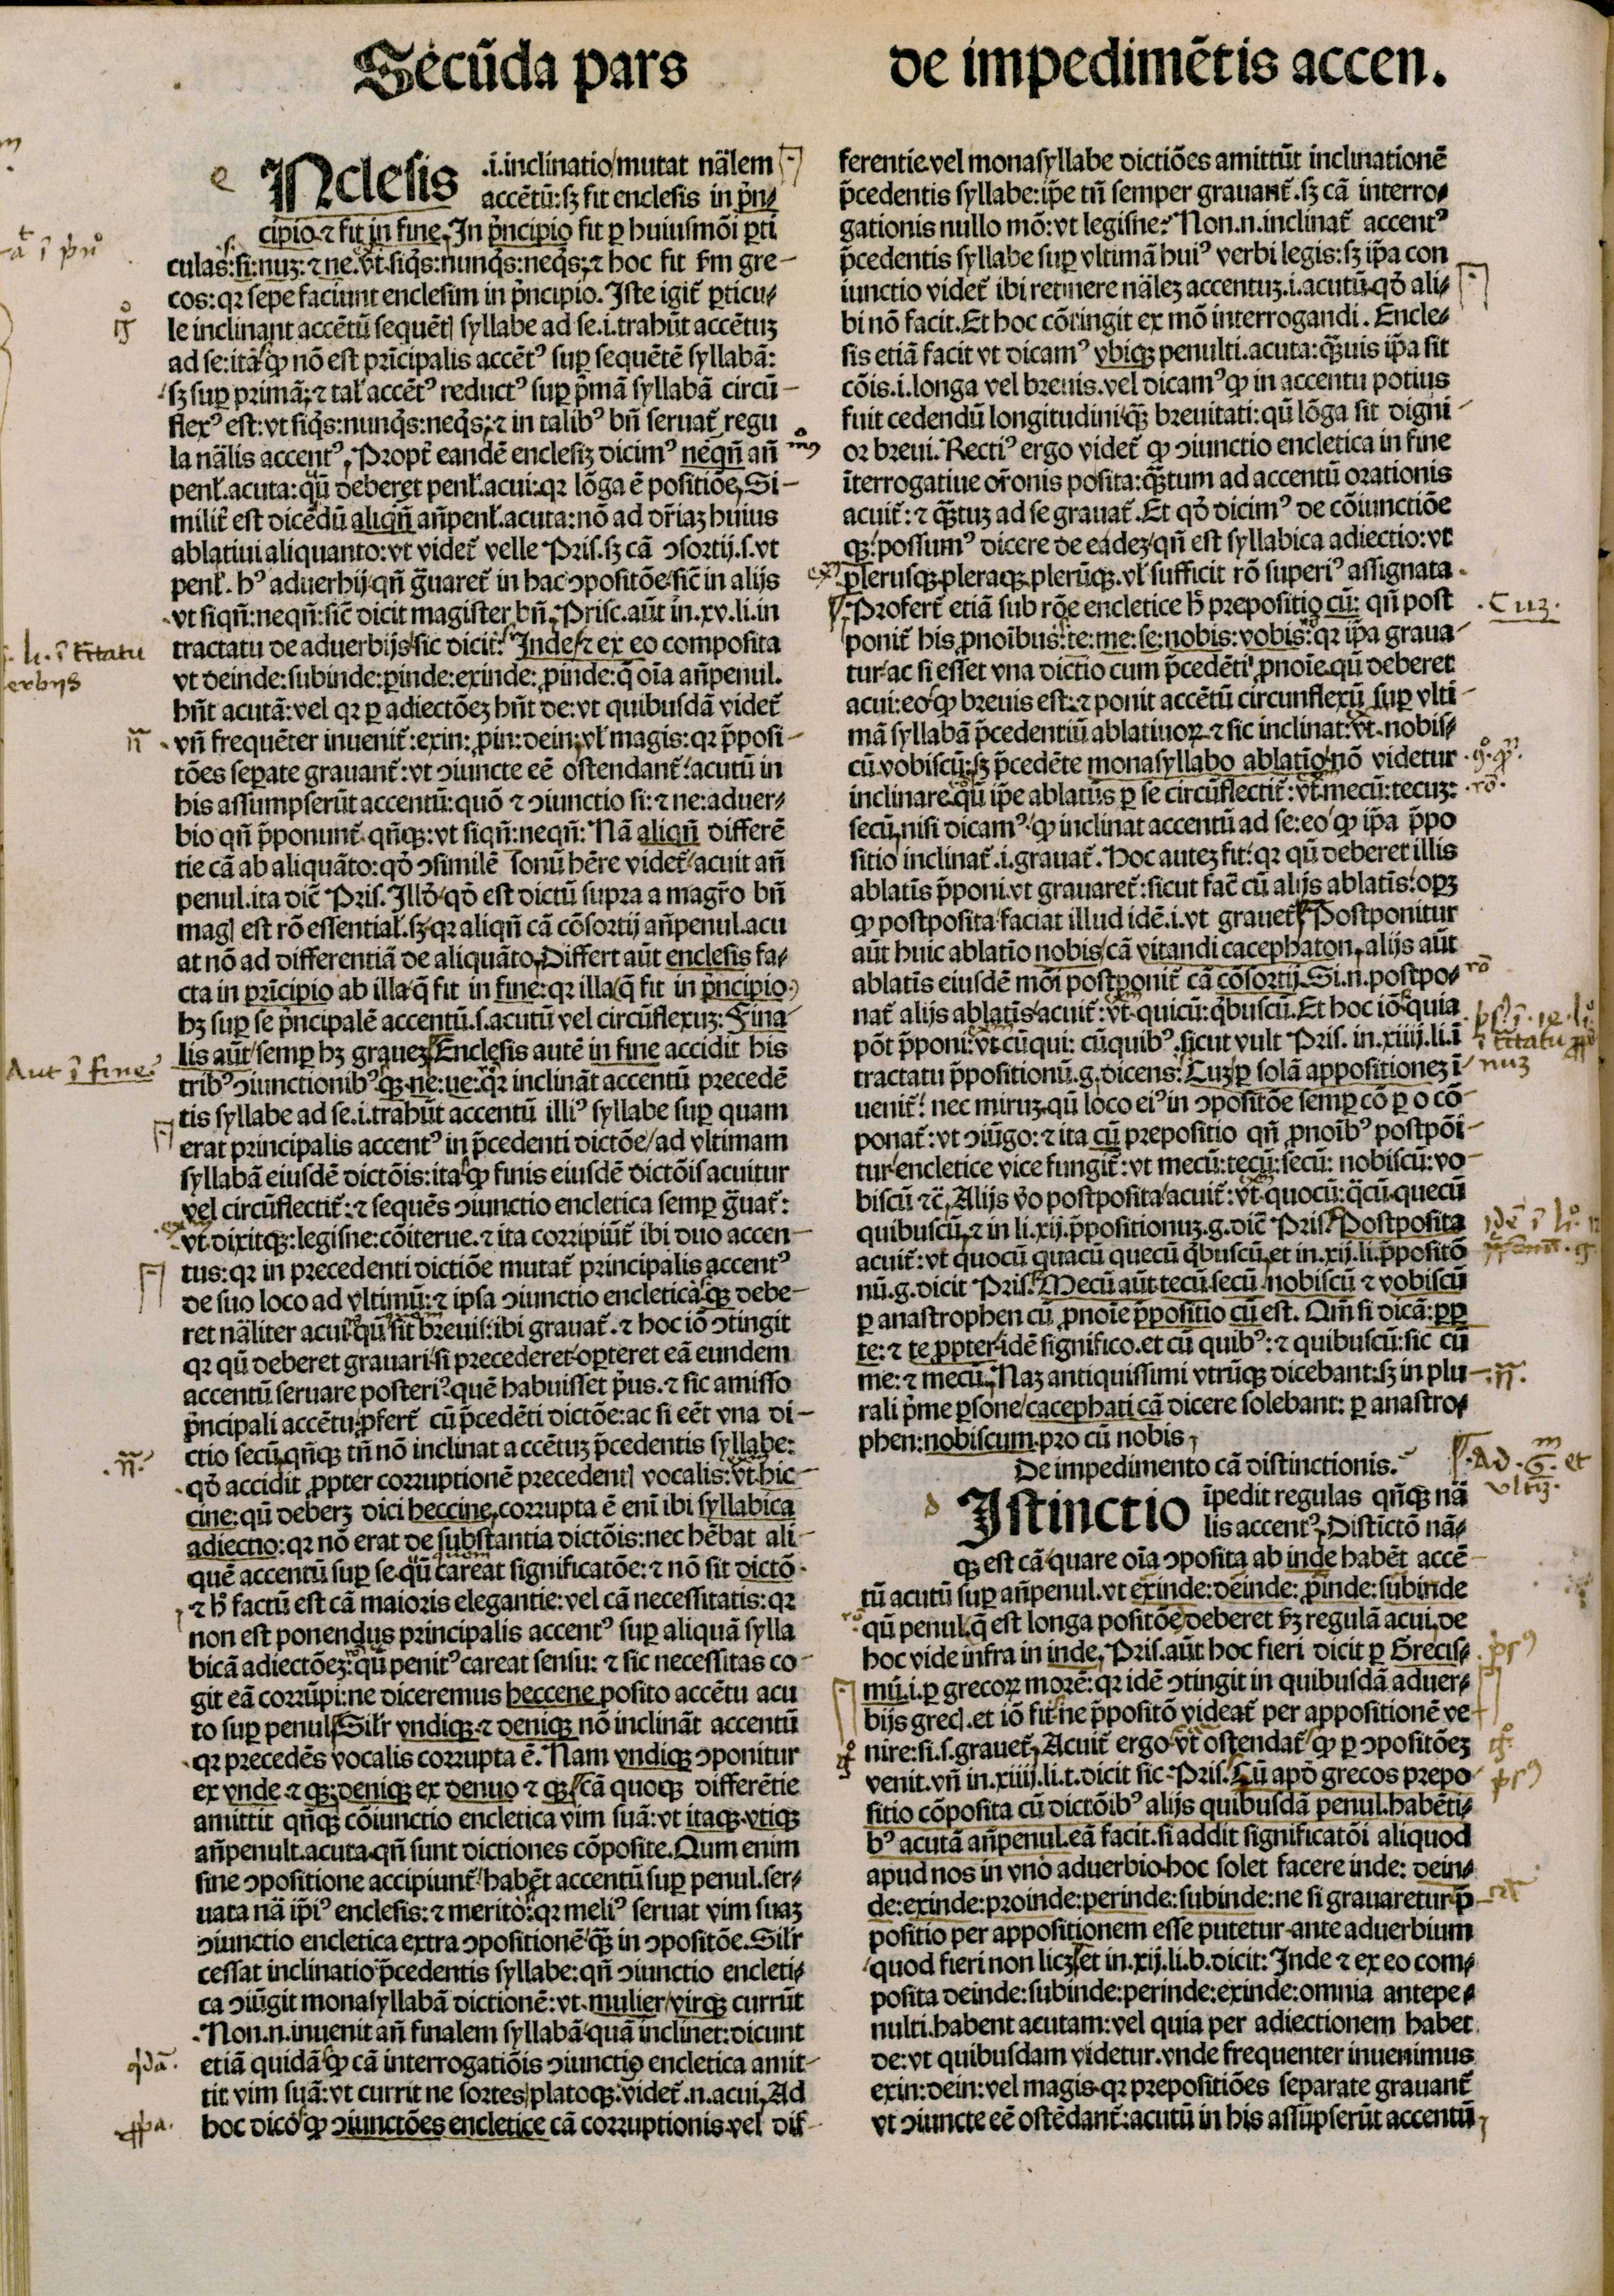 Secũda pars
de impedimẽtis accen.
e INclesis .i.inclinatio/mutat nãlem
accẽtũ:sȝ fit enclesis in p̃n⸗
cipio.⁊ fit in fine. In p̃ncipio fit ꝑ huiusmõi ꝑti
culas:si:nuȝ:⁊ ne.vt.siq̃s:nunq̃s:neq̃s:⁊ hoc fit ẜm gre-
cos:qꝛ sepe faciunt enclesim in p̃ncipio. Iste igit̃ ꝑticu⸗
le inclinant accẽtũ sequẽtꝭ syllabe ad se.i.trahũt accẽtuȝ
ad se:ita ꝙ nõ est prĩcipalis accẽtꝰ suꝑ sequẽtẽ syllabã:
sȝ suꝑ primã:⁊ tal̃ accẽtꝰ reductꝰ suꝑ p̃mã syllabã circũ-
flexꝰ est:vt siq̃s:nunq̃s:neq̃s:⁊ in talibꝰ bñ seruat̃ regu
la nãlis accentꝰ. Propt̃ eandẽ enclesiȝ dicimꝰ neq̃ñ añ
penl̃.acuta:qũ deberet penl̃.acui:qꝛ lõga ẽ positiõe. Si-
milit̃ est dicẽdũ aliqñ añpenl̃.acuta:nõ ad dr̃iaȝ huius
ablatiui aliquanto:vt videt̃ velle Pris.sȝ cã ↄsortij.s.vt
penl̃. hꝰ aduerbij/qñ g̃uaret̃ in hac ↄpositõe/sic̃ in alijs
vt siqñ:neqñ:sic̃ dicit magister bñ. Prisc.aũt in.xv.li.in
tractatu de aduerbijs/sic dicit. Inde/⁊ ex eo composita
vt deinde:subinde:ꝑinde:exinde:ꝓinde:q̃ oĩa añpenul.
hñt acutã:vel qꝛ ꝑ adiectõeȝ hñt de:vt quibusdã videt̃
vñ frequẽter inuenit̃:exin:ꝓin:dein:vl̃ magis:qꝛ p̃posi-
tões seꝑate grauant̃:vt ↄiuncte eẽ ostendant̃/acutũ in
his assumpserũt accentũ:quõ ⁊ ↄiunctio si:⁊ ne:aduer⸗
bio qñ p̃ponunt̃.qñqꝫ:vt siqñ:neqñ: Nã aliqñ differẽ
tie cã ab aliquãto:qõ ↄsimilẽ sonũ hẽre videt̃/acuit añ
penul.ita dic̃ Pris. Illõ/qõ est dictũ supra a magr̃o bñ
magꝭ est rõ essential̃.sȝ/qꝛ aliqñ cã cõsortij añpenul.acu
at nõ ad differentiã de aliquãto. Differt aũt enclesis fa⸗
cta in prĩcipio ab illa/q̃ fit in fine:qꝛ illa/q̃ fit in p̃ncipio
hȝ suꝑ se p̃ncipalẽ accentũ.s.acutũ vel circũflexuȝ: Fina
lis aũt/semꝑ hȝ graueȝ. Enclesis autẽ in fine accidit his
tribꝰ ↄiunctionibꝰ/qꝫ:ne:ue:qꝛ inclinãt accentũ precedẽ
tis syllabe ad se.i.trahũt accentũ illiꝰ syllabe suꝑ quam
erat principalis accentꝰ in p̃cedenti dictõe/ad vltimam
syllabã eiusdẽ dictõis:ita ꝙ finis eiusdẽ dictõis acuitur
vel circũflectit̃:⁊ sequẽs ↄiunctio encletica semꝑ g̃uat̃:
vt dixitqꝫ:legisne:cõiterue.⁊ ita corripiũt̃ ibi duo accen-
tus:qꝛ in precedenti dictiõe mutat̃ principalis accentꝰ
de suo loco ad vltimũ:⁊ ipsa ↄiunctio encletica qꝫ debe-
ret nãliter acui/qũ sit breuis:ibi grauat̃.⁊ hoc iõ ↄtingit
qꝛ qũ deberet grauari/si precederet/oꝑteret eã eundem
accentũ seruare posteriꝰ/quẽ habuisset p̃us.⁊ sic amisso
p̃ncipali accẽtu/ꝓfert̃ cũ p̃cedẽti dictõe:ac si eẽt vna di-
ctio secũ.qñqꝫ tñ nõ inclinat accẽtuȝ p̃cedentis syllabe:
qõ accidit ꝓpter corruptionẽ precedentꝭ vocalis:vt hic-
cine:qũ deberȝ dici heccine.corrupta ẽ enĩ ibi syllabica
adiectio:qꝛ nõ erat de substantia dictõis:nec hẽbat ali-
quẽ accentũ suꝑ se.qũ careat significatõe:⁊ nõ sit dictõ.
⁊ h̃ factũ est cã maioris elegantie:vel cã necessitatis:qꝛ
non est ponendus principalis accentꝰ suꝑ aliquã sylla
bicã adiectõeȝ:qũ penitꝰ careat sensu:⁊ sic necessitas co-
git eã corrũpi:ne diceremus heccene posito accẽtu acu
to suꝑ penul. Silr̃ vndiqꝫ.⁊ deniqꝫ nõ inclinãt accentũ
qꝛ precedẽs vocalis corrupta ẽ. Nam vndiqꝫ ↄponitur
ex vnde ⁊ qꝫ:deniqꝫ ex denuo ⁊ qꝫ. cã quoqꝫ differẽtie
amittit qñqꝫ cõiunctio encletica vim suã:vt itaqꝫ.vtiqꝫ
añpenult.acuta.qñ sunt dictiones cõposite. Qum enim
sine ↄpositione accipiunt̃/habẽt accentũ suꝑ penul.ser⸗
uata nã ip̃iꝰ enclesis:⁊ merito:qꝛ meliꝰ seruat vim suaȝ
ↄiunctio encletica extra ↄpositionẽ/q̃ꝫ in ↄpositõe. Silr̃
cessat inclinatio p̃cedentis syllabe:qñ ↄiunctio encleti⸗
ca ↄiũgit monasyllabã dictionẽ:vt.mulier/virqꝫ currũt
Non.n.inuenit añ finalem syllabã/quã inclinet:dicunt
etiã quidã/ꝙ cã interrogatiõis ↄiunctio encletica amit-
tit vim suã:vt currit ne sortes/platoqꝫ:videt̃.n.acui. Ad
hoc dico/ꝙ ↄiunctões encletice cã corruptionis.vel dif-
ferentie.vel monasyllabe dictiões amittũt inclinationẽ
p̃cedentis syllabe:ip̃e tñ semper grauant̃.sȝ cã interro⸗
gationis nullo mõ:vt legisne? Non.n.inclinat̃ accentꝰ
p̃cedentis syllabe suꝑ vltimã huiꝰ verbi legis:sȝ ip̃a con
iunctio videt̃ ibi retinere nãleȝ accentuȝ.i.acutũ.qõ ali⸗
bi nõ facit. Et hoc cõtingit ex mõ interrogandi. Encle⸗
sis etiã facit vt dicamꝰ vbiqꝫ penulti.acuta:q̃ꝫuis ip̃a sit
cõis.i.longa vel breuis.vel dicamꝰ/ꝙ in accentu potius
fuit cedendũ longitudini/q̃ꝫ breuitati:qũ lõga sit digni-
or breui. Rectiꝰ ergo videt̃ ꝙ ↄiunctio encletica in fine
ĩterrogatiue or̃onis posita:q̃ꝫtum ad accentũ orationis
acuit̃:⁊ q̃ꝫtuȝ ad se grauat̃. Et qõ dicimꝰ de cõiunctiõe
qꝫ:possumꝰ dicere de eadeȝ/qñ est syllabica adiectio:vt
plerusqꝫ.pleraqꝫ.plerũqꝫ.vl̃ sufficit rõ superiꝰ assignata.
Profert̃ etiã sub rõe encletice h̃ prepositio cũ: qñ post
ponit̃ his ꝓnoĩbus:te:me:se:nobis:vobis:qꝛ ip̃a graua-
tur/ac si esset vna dictio cum p̃cedẽti ꝓnoĩe.qũ deberet
acui:eo ꝙ breuis est:⁊ ponit accẽtũ circunflexũ suꝑ vlti-
mã syllabã p̃cedentiũ ablatiuoꝝ.⁊ sic inclinat:vt.nobis⸗
cũ.vobiscũ:sȝ p̃cedẽte monasyllabo ablatĩo/nõ videtur
inclinare.qũ ip̃e ablatũs ꝑ se circũflectit̃:vt.mecũ:tecuȝ:
secũ.nisi dicamꝰ/ꝙ inclinat accentũ ad se:eo ꝙ ip̃a p̃po
sitio inclinat̃.i.grauat̃. Hoc auteȝ fit:qꝛ qũ deberet illis
ablatĩs p̃poni.vt grauaret̃:sicut fac̃ cũ alijs ablatĩs:oꝑȝ
ꝙ postposita faciat illud idẽ.i.vt grauet̃. Postponitur
aũt huic ablatĩo nobis/cã vitandi cacephaton. alijs aũt
ablatĩs eiusdẽ mõi postponit̃ cã cõsortij. Si.n.postpo⸗
nat̃ alijs ablatĩs/acuit̃:vt.quicũ:q̃buscũ. Et hoc iõ/quia
põt p̃poni:vt cũqui:cũquibꝰ.sicut vult Pris. in.xiiij.li.ĩ
tractatu p̃positionũ.g.dicens: Cuȝ/ꝑ solã appositioneȝ ĩ-
uenit̃. nec miruȝ.qũ loco eiꝰ in ↄpositõe semꝑ cõ ꝑ o cõ-
ponat̃:vt ↄiũgo:⁊ ita cũ prepositio qñ ꝓnoĩbꝰ postpõi-
tur/encletice vice fungit̃:vt mecũ:tecũ:secũ:nobiscũ:vo-
biscũ ⁊c̃. Alijs ṽo postposita/acuit̃:vt.quocũ:q̃cũ.quecũ
quibuscũ.⁊ in li.xij.p̃positionuȝ.g.dic̃ Pris. Postposita
acuit̃:vt quocũ quacũ quecũ q̃buscũ.et in.xij.li.p̃positõ
nũ.g.dicit Pris. Mecũ aũt.tecũ.secũ.nobiscũ ⁊ vobiscũ
ꝑ anastrophen cũ ꝓnoĩe p̃positio cũ est. Om̃ si dicã:ꝓꝑ
te:⁊ te ꝓpter/idẽ significo.et cũ quibꝰ:⁊ quibuscũ:sic cũ
me:⁊ mecũ. Naȝ antiquissimi vtrũqꝫ dicebant:sȝ in plu-
rali p̃me ꝑsone/cacephati cã dicere solebant: ꝑ anastro⸗
phen:nobiscum.pro cũ nobis.
De impedimento cã distinctionis.
d Istinctio ĩpedit regulas qñqꝫ nã
lis accentꝰ. Distĩctõ nã⸗
qꝫ est cã/quare oĩa ↄposita ab inde habẽt accẽ-
tũ acutũ suꝑ añpenul.vt exinde:deinde:ꝓinde:subinde
qũ penul.q̃ est longa positõe/deberet ẜȝ regulã acui.de
hoc vide infra in inde. Pris.aũt hoc fieri dicit ꝑ Grecis⸗
mũ.i.ꝑ grecoꝝ morẽ:qꝛ idẽ ↄtingit in quibusdã aduer⸗
bijs grecꝭ.et iõ fit/ne p̃positõ videat̃ per appositionẽ ve
nire:si.s.grauet̃. Acuit̃ ergo/vt ostendat̃/ꝙ ꝑ ↄpositõeȝ
venit.vñ in.xiiij.li.t.dicit sic Pris. Cũ apõ grecos prepo
sitio cõposita cũ dictõibꝰ alijs quibusdã penul.habẽti⸗
bꝰ acutã añpenul.eã facit.si addit significatõi aliquod
apud nos in vno aduerbio.hoc solet facere inde: dein⸗
de:exinde:proinde:perinde:subinde:ne si grauaretur p̃
positio per appositionem esse putetur ante aduerbium
quod fieri non licȝ. et in.xij.li.b.dicit: Inde ⁊ ex eo com⸗
posita deinde:subinde:perinde:exinde:omnia antepe⸗
nulti.habent acutam:vel quia per adiectionem habet
de:vt quibusdam videtur.vnde frequenter inuenimus
exin:dein:vel magis.qꝛ prepositiões separate grauant̃
vt ↄiuncte eẽ ostẽdant̃:acutũ in his assũpserũt accentũ,
Aut ĩ fine.
.Cuȝ.
Ad .G. et
vltiȝ.